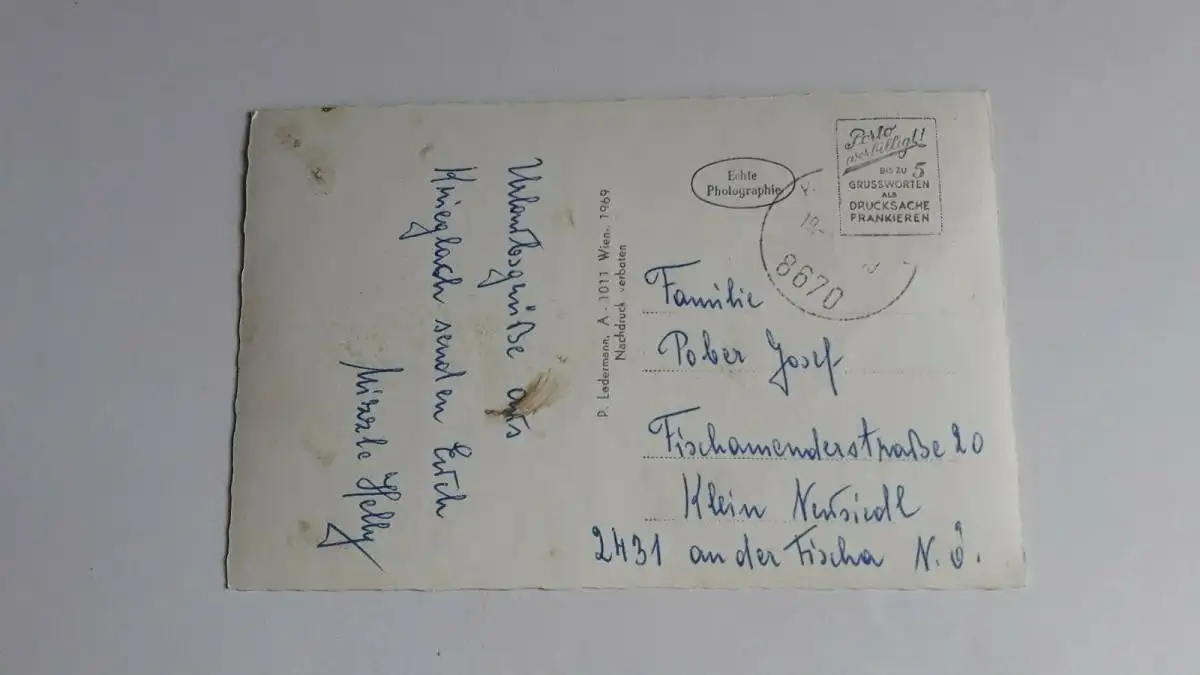 Urlaubsgrüße aus
Krieglach senden Euch
Helly
P. Ledermann, A - 1011 Wien., 1969
Nachdruck verboten
Echte
Photographie
Porto
verbilligt!
BIS ZU 5
GRUSSWORTEN
ALS
DRUCKSACHE
FRANKIEREN
19.-
8670
Familie
Pober Josef
Fischamenderstraße 20
Klein Neusiedl
2431 an der Fischa N.Ö.